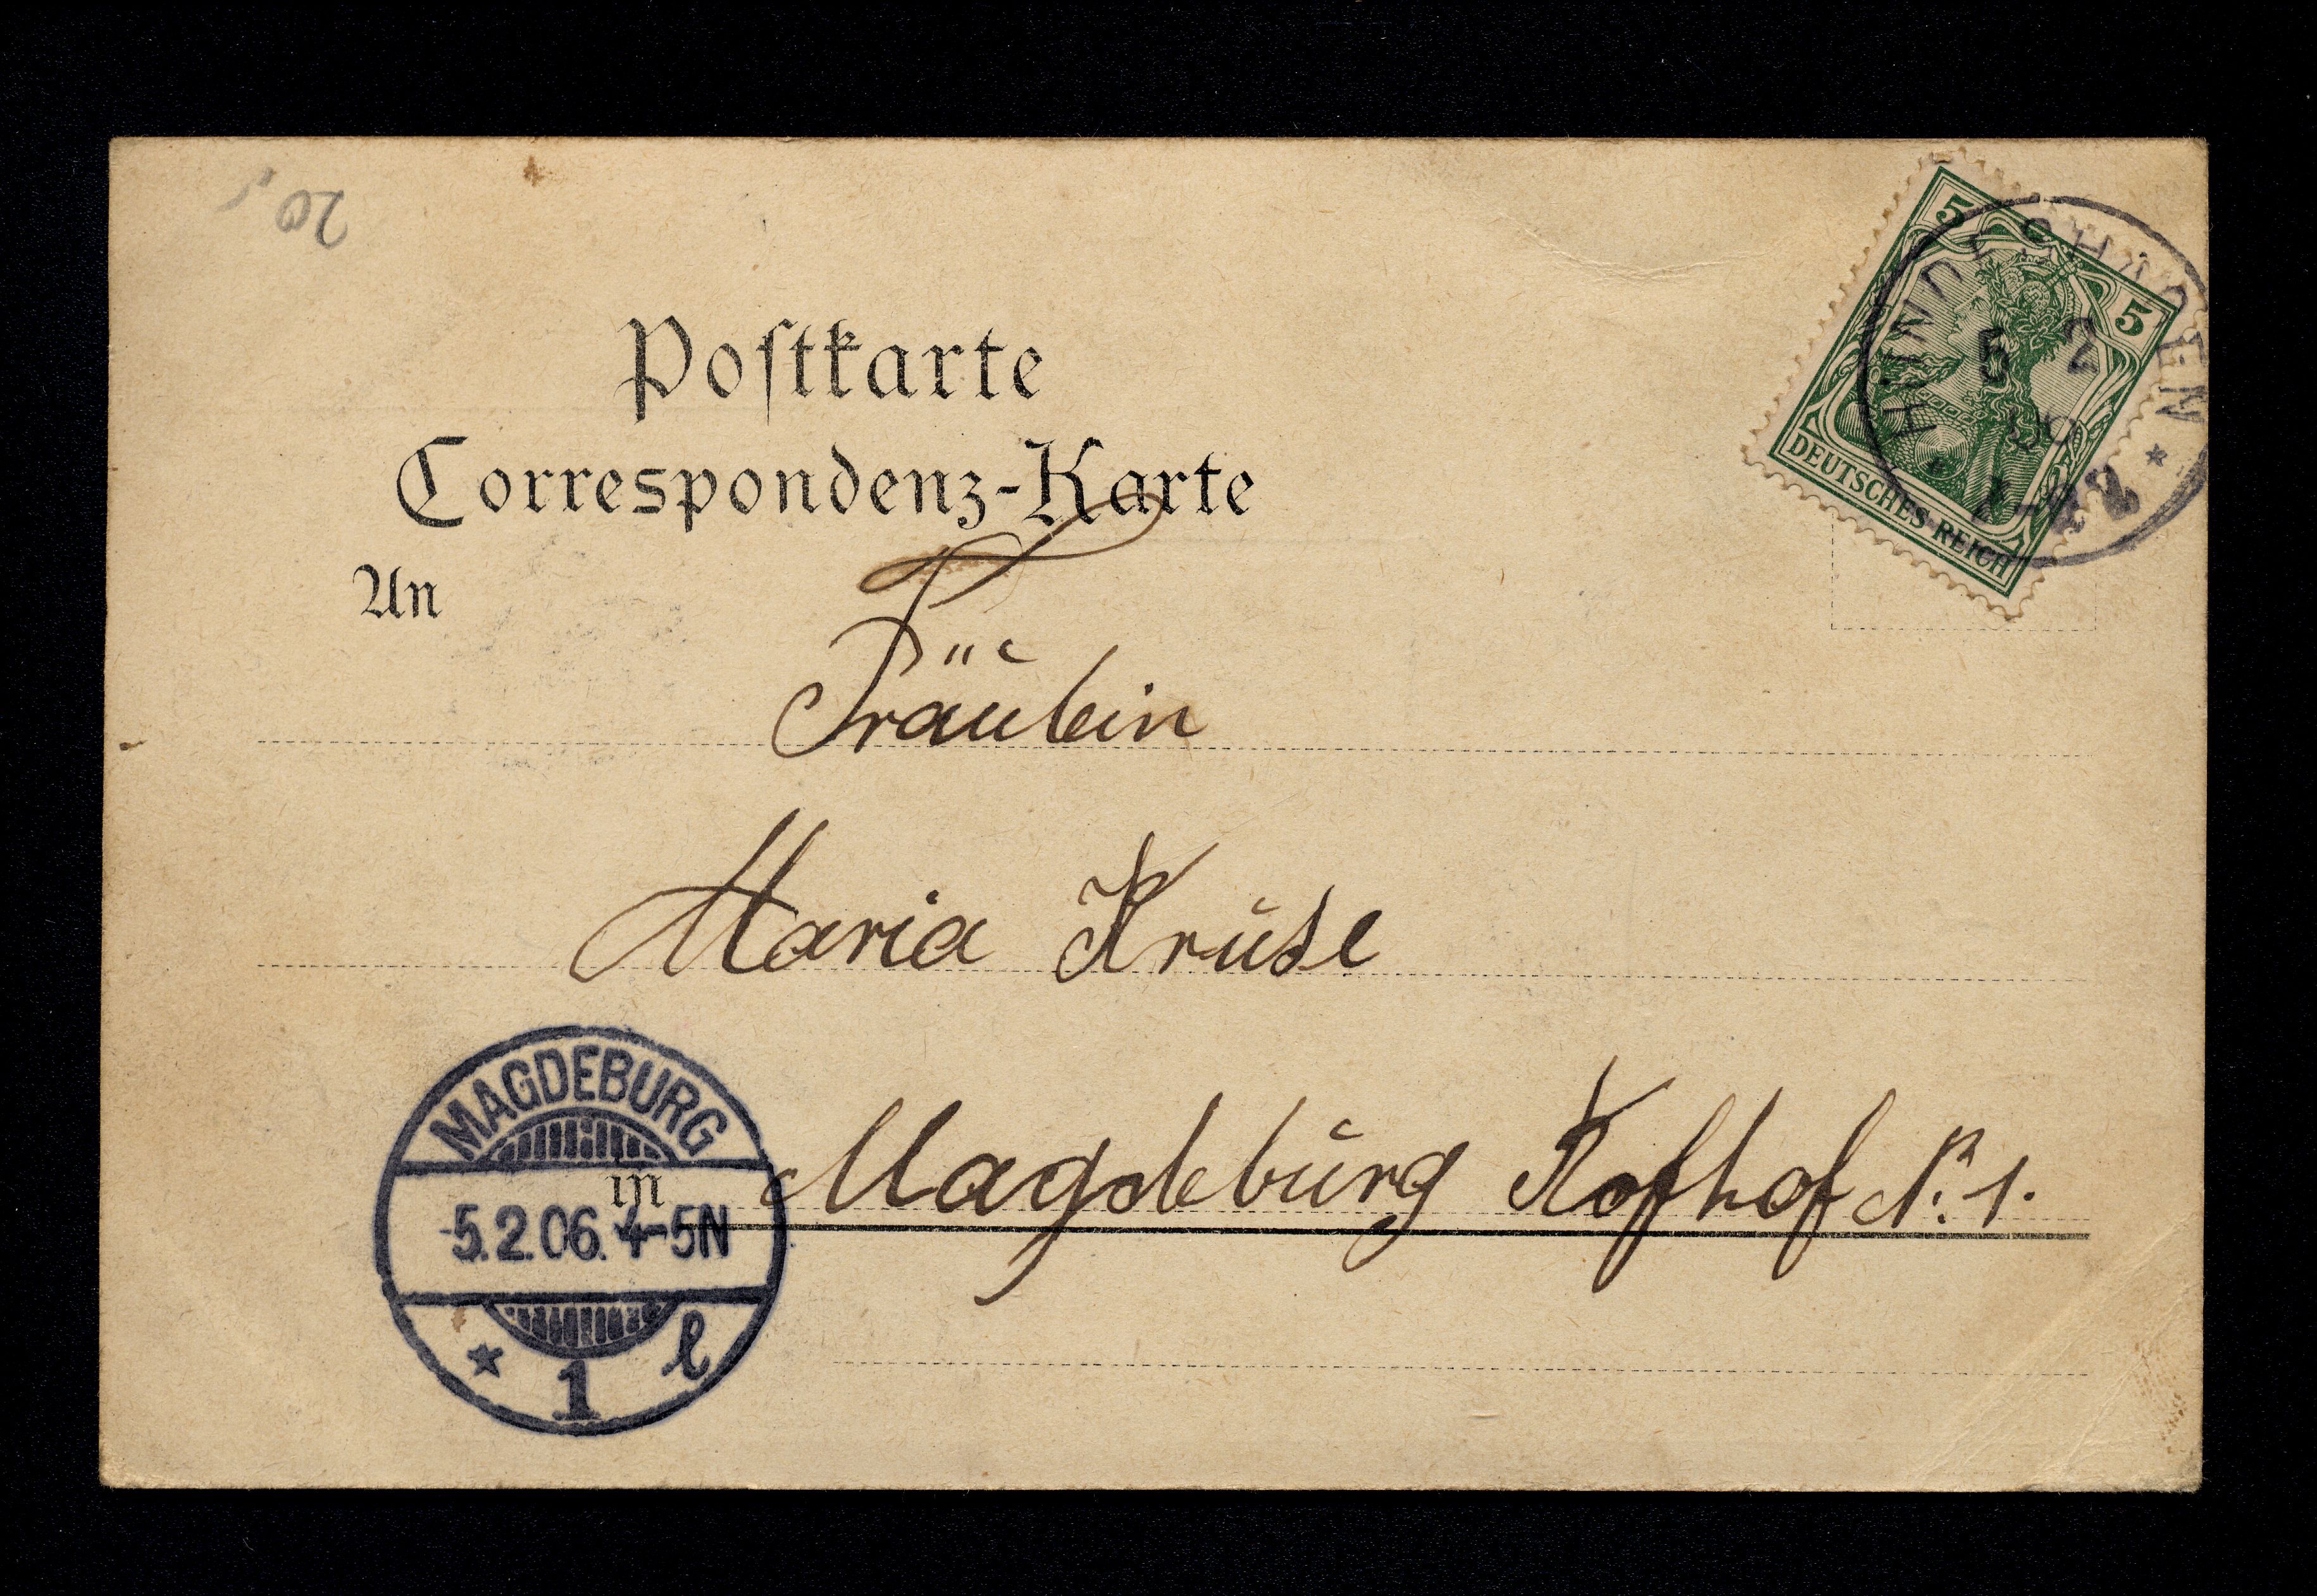 20,
Postkarte
Correspondenz-Karte
An
5
5
DEUTSCHES REICH
HUNDE
EN
5 2
06
Fräulein
Maria Kruse
MAGDEBURG
-5.2.06. 4-5N
* 1 l
in Magdeburg Hofhof № 1.